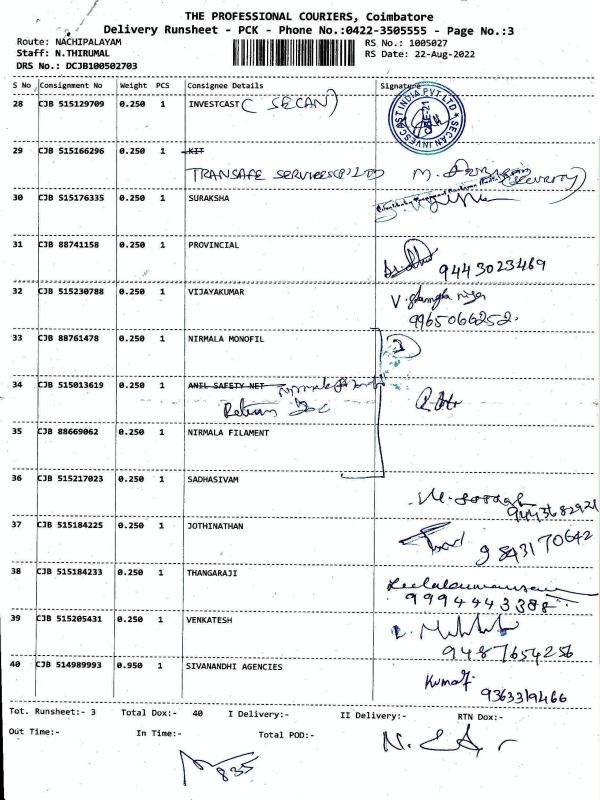 THE PROFESSIONAL COURIERS, Coimbatore
Delivery Runsheet - PCK - Phone No.:0422-3505555 - Page No.:3
Route: NACHIPALAYAM
RS No.: 1005027
Staff: N.THIRUMAL
RS Date: 22-Aug-2022
DRS No.: DCJB100502703
S No Consignment No Weight PCS Consignee Details Signature
28 CJB 515129709 0.250 1 INVESTCAST (SECAN)
SECAN INVESCAST INDIA PVT LTD
29 CJB 515166296 0.250 1 KIT
TRANSAFE SERVICES(P)LTD M. (Security)
30 CJB 515176335 0.250 1 SURAKSHA
31 CJB 88741158 0.250 1 PROVINCIAL
9443023469
32 CJB 515230788 0.250 1 VIJAYAKUMAR V.
9965066252.
33 CJB 88761478 0.250 1 NIRMALA MONOFIL 3
34 CJB 515013619 0.250 1 ANIL SAFETY NET
Return
35 CJB 88669062 0.250 1 NIRMALA FILAMENT
36 CJB 515217023 0.250 1 SADHASIVAM
9443682921
37 CJB 515184225 0.250 1 JOTHINATHAN
9843170642
38 CJB 515184233 0.250 1 THANGARAJI
9994443388
39 CJB 515205431 0.250 1 VENKATESH
9487654256
40 CJB 514989993 0.950 1 SIVANANDHI AGENCIES Kumar
9363319466
Tot. Runsheet:- 3 Total Dox:- 40 I Delivery:- II Delivery:- RTN Dox:-
Out Time:- In Time:- Total POD:-
835